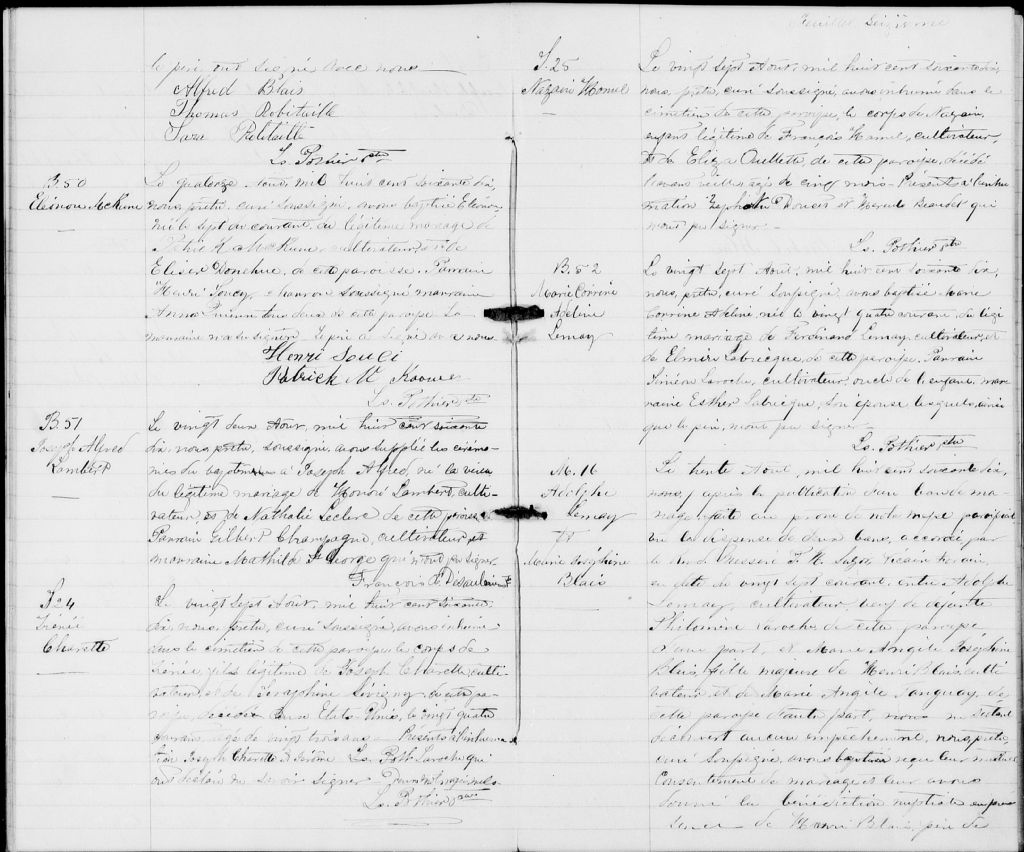 le père ont signé avec nous
Alfred Blais
Thomas Robitaille
Sara Robitaille
Ls. Pothier ptre
B. 50
Eleonore McKune
Le quatorze Aout, mil huit cent soixante dix,
nous, prêtre, curé soussigné, avons baptisé Eléono-
né le sept du courant, du légitime mariage de
Patrick McKune, cultivateur, et de
Eliser Donehue, de cette paroisse. Parrain
Henri Soucy, charron soussigné marraine
Anna tous deux de cette paroisse. La
marraine n'a su signer. Le père a signé avec nous
Henri Souci
Patrick Mc Kooune
Ls. Pothier ptre
B. 51
Joseph Alfred
Lambert
Le vingt deux Aout, mil huit cent soixante
dix, nous prêtre, soussigné, avons supplié les cérémo-
nies du baptême à Joseph Alfred, né la veille
du légitime mariage de Honoré Lambert, culti-
vateur, et de Nathalie Leclerc de cette paroisse
Parrain Gilbert Champagne, cultivateur et
marraine Mathilde St George qui n'ont pu signer
François D. Désaulniers
S. 24
Irénée
Charette
Le vingt sept Aout, mil huit cent soixante
dix, nous, prêtre, curé soussigné, avons inhumé
dans le cimetière de cette paroisse le corps de
Irénée, fils légitime de Joseph Charette, culti-
vateur, et de Séraphine Sévigny, de cette pa-
roisse, décédé aux Etats-Unis, le vingt quatre
âgé de vingt trois ans. Présents à l'inhuma-
tion Joseph Charette Laroche qui
ont déclaré ne savoir signer
Ls. Pothier ptre
Feuillet Seizième
S. 25
Nazaire Hamel
Le vingt sept Aout, mil huit cent soixante dix,
nous, prêtre, curé soussigné, avons inhumé dans le
cimetière de cette paroisse, le corps de Nazaire,
enfant légitime de François Hamel, cultivateur,
et de Eliza Ouellette, de cette paroisse, décédé
l'avant veille, âgé de cinq mois. Présents à l'inhu-
mation Zéphirin Doucet et Hercule Beaudet qui
n'ont pu signer.
Ls. Pothier ptre
B. 52
Marie Corrine
Adeline
Lemay
Le vingt sept Aout, mil huit cent soixante dix,
nous, prêtre, curé soussigné, avons baptisé Marie
Corrine Adeline, née le vingt quatre courant, du légi-
time mariage de Ferdinand Lemay, cultivateur, et
de Elmire Labrecque, de cette paroisse. Parrain
Siméon Laroche, cultivateur, oncle de l'enfant, mar-
raine Esther Labrecque, son épouse lesquels, ainsi
que le père, n'ont pu signer.
Ls. Pothier ptre
M. 16
Adolphe
Lemay
et
Marie Joséphine
Blais
Le trente Aout, mil huit cent soixante dix,
nous, après la publication d'un ban de ma-
riage, faite au prône de notre messe paroissiale
vu la dispense de deux bans, accordée par
le Messire
en date du vingt sept courant, entre Adolphe
Lemay, cultivateur, veuf de défunte
Philomène Laroche de cette paroisse
d'une part, et Marie Angèle Joséphine
Blais, fille majeure de Henri Blais, culti-
vateur et de Marie Angèle Tanguay, de
cette paroisse d'autre part, nous
découvert aucun empêchement, nous, prêtre,
curé soussigné, avons reçu leur mutuel
Consentement de mariage et leur avons
donné la bénédiction nuptiale en pré-
sence de Henri Blais, père de